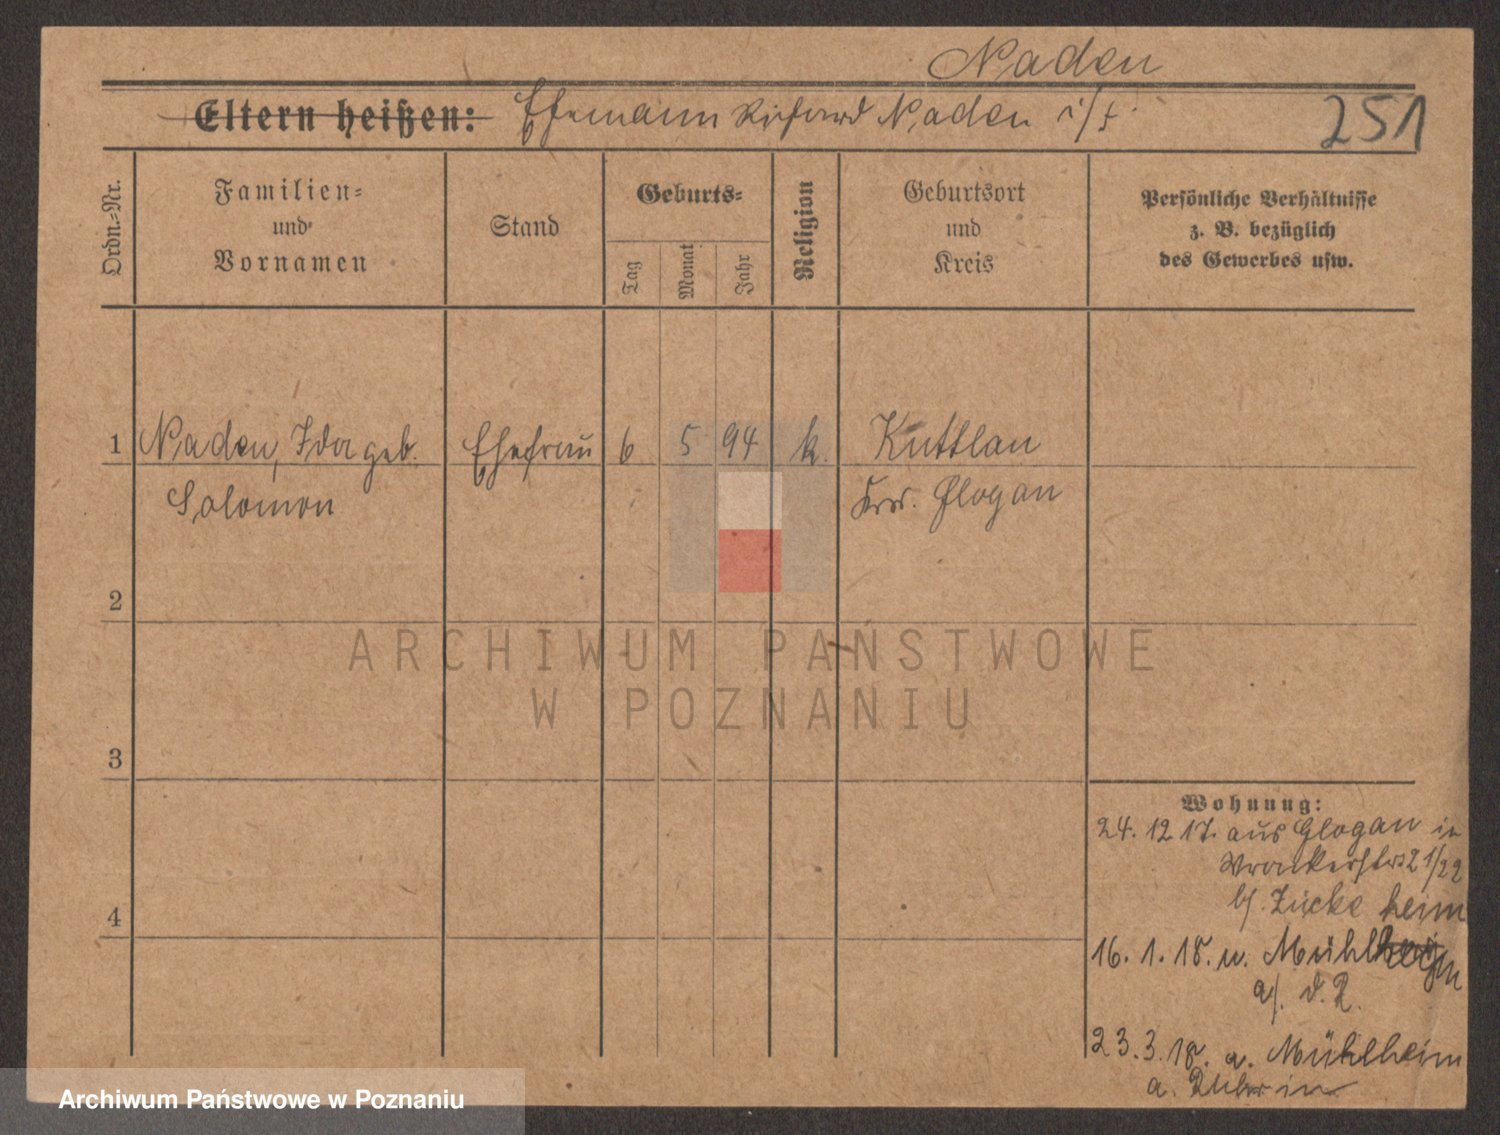 Naden
Eltern heißen: Ehemann Richard Naden i/F.
251
Ordn.-Nr.
Familien-
und
Vornamen
Stand
Geburts-
Tag
Monat
Jahr
Religion
Geburtsort
und
Kreis
Persönliche Verhältnisse
z. B. bezüglich
des Gewerbes usw.
1 Naden, Ida geb. Ehefrau 6 5 94 k. Kuttlau
Salomon Krs. Glogau
2
ARCHIWUM PAŃSTWOWE
W POZNANIU
3
Wohnung:
24. 12 17. aus Glogau in
Wronkerstr 21/22
b/. Zücke
heim
4
16. 1. 18. n. Mühlheim
a/. d. R.
23. 3. 18. a. Mühlheim
a. Ruhr in
Archiwum Państwowe w Poznaniu